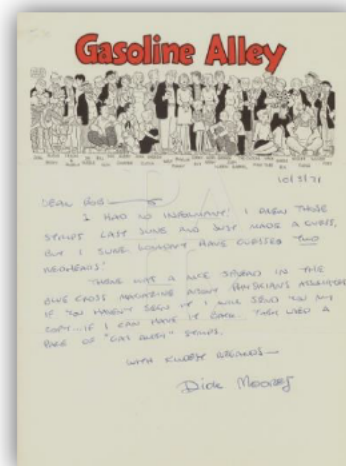 Gasoline Alley
10/5/71
DEAR BOB—
I HAD NO INFORMANT! I DREW THOSE
STRIPS LAST JUNE AND JUST MADE A GUESS,
BUT I SURE WOULDN'T HAVE GUESSED TWO
REDHEADS!
THERE WAS A NICE SPREAD IN THE
BLUE CROSS MAGAZINE ABOUT PHYSICIAN'S ASSOCIATES
IF YOU HAVEN'T SEEN IT I WILL SEND YOU MY
COPY... IF I CAN HAVE IT BACK. THEY USED A
PAGE OF "GAS ALLEY" STRIPS.
WITH KINDEST REGARDS—
Dick Moores